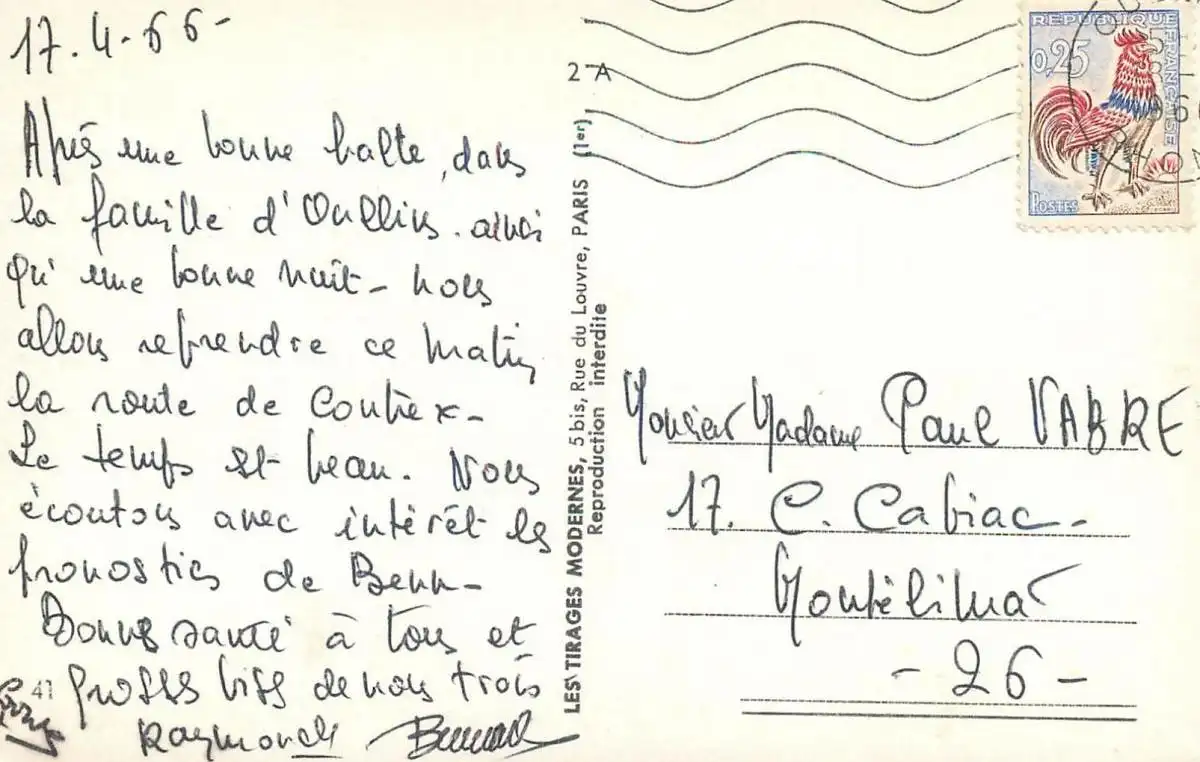 17.4.66-
Après une bonne halte, dans
la famille d'Oullins. ainsi
qu'une bonne nuit- nous
allons reprendre ce matin
la route de Contrex-
Le temps est beau. Nous
écoutons avec intérêt les
pronostics de Benn-
Bonne santé à tous et
grosses bises de nous trois
Raymonde Bernard
41
LES TIRAGES MODERNES, 5 bis, Rue du Louvre, PARIS (1er)
Reproduction interdite
2 A
RÉPUBLIQUE FRANÇAISE
0,25
POSTES
Monsieur Madame Paul VABRE
17. C. Cabiac-
Montélimar
-26-